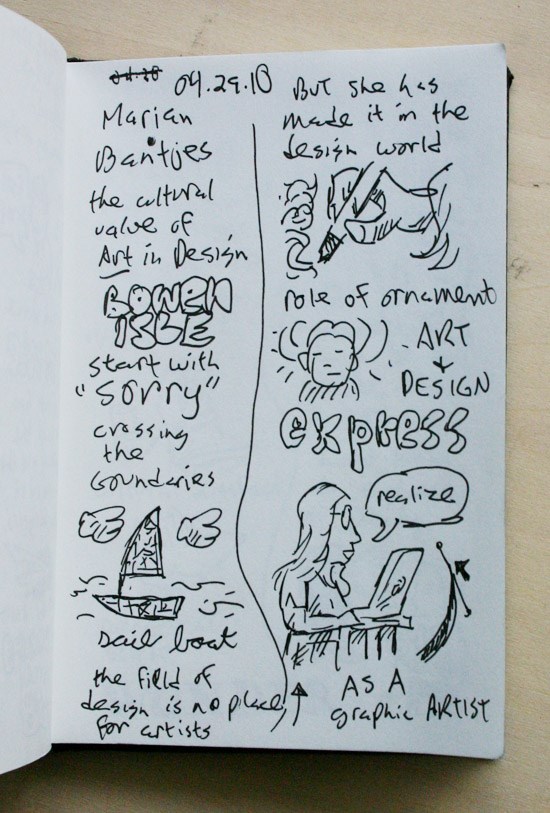 04.29.10
Marian
Bantjes
the cultural
value of
Art in Design
BOWEN
ISLE
start with
"Sorry"
crossing
the
boundaries
sail boat
the field of
design is no place
for artists
BUT she has
made it in the
design world
role of ornament
ART
+
DESIGN
express
realize
AS A
graphic ARTIST